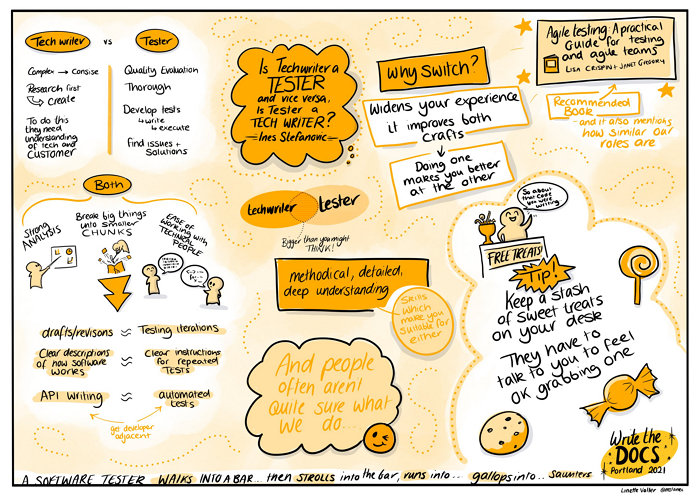 Tech writer
vs
Tester
Complex → Consise
Research first
↳ create
To do this
they need
understanding
of tech and
CUSTOMER
Quality Evaluation
Thorough
Develop tests
↳ write
↳ execute
find issues +
Solutions
Both
Strong
ANALYSIS
Break big things
into smaller
CHUNKS
EASE of
working with
TECHNICAL
PEOPLE
drafts/revisons ≈ Testing iterations
Clear descriptions
of how software
works
≈
Clear instructions
for repeated
TESTS
API Writing ≈ automated
tests
get developer
adjacent
Is Techwriter a
TESTER
and vice versa,
is Tester a
TECH WRITER?
— Ines Stefanovic —
techwriter
tester
Bigger than you might
THINK!
methodical, detailed,
deep understanding
Skills
which
make you
suitable for
either
And people
often arent
Quite sure what
we do...
Why Switch?
Widens your experience
it improves both
crafts
Doing one
makes you better
at the other
Agile testing: A practical
Guide for testing
and agile teams
LISA CRISPIN + JANET GREGORY
Recommended
Book
- and it also mentions
how similar our
roles are
So about
that code
you were
writing
FREE TREATS!
Tip!
Keep a stash
of sweet treats
on your desk
They have to
talk to you to feel
OK grabbing one
Write the
DOCS
Portland 2021
A SOFTWARE TESTER WALKS INTO A BAR... then STROLLS into the bar, runs into... gallops into.. Saunters